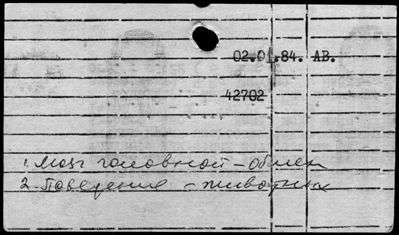 02.01.84. АВ.
42702
1. Мозг головной – обмен
2. Поведение – животных